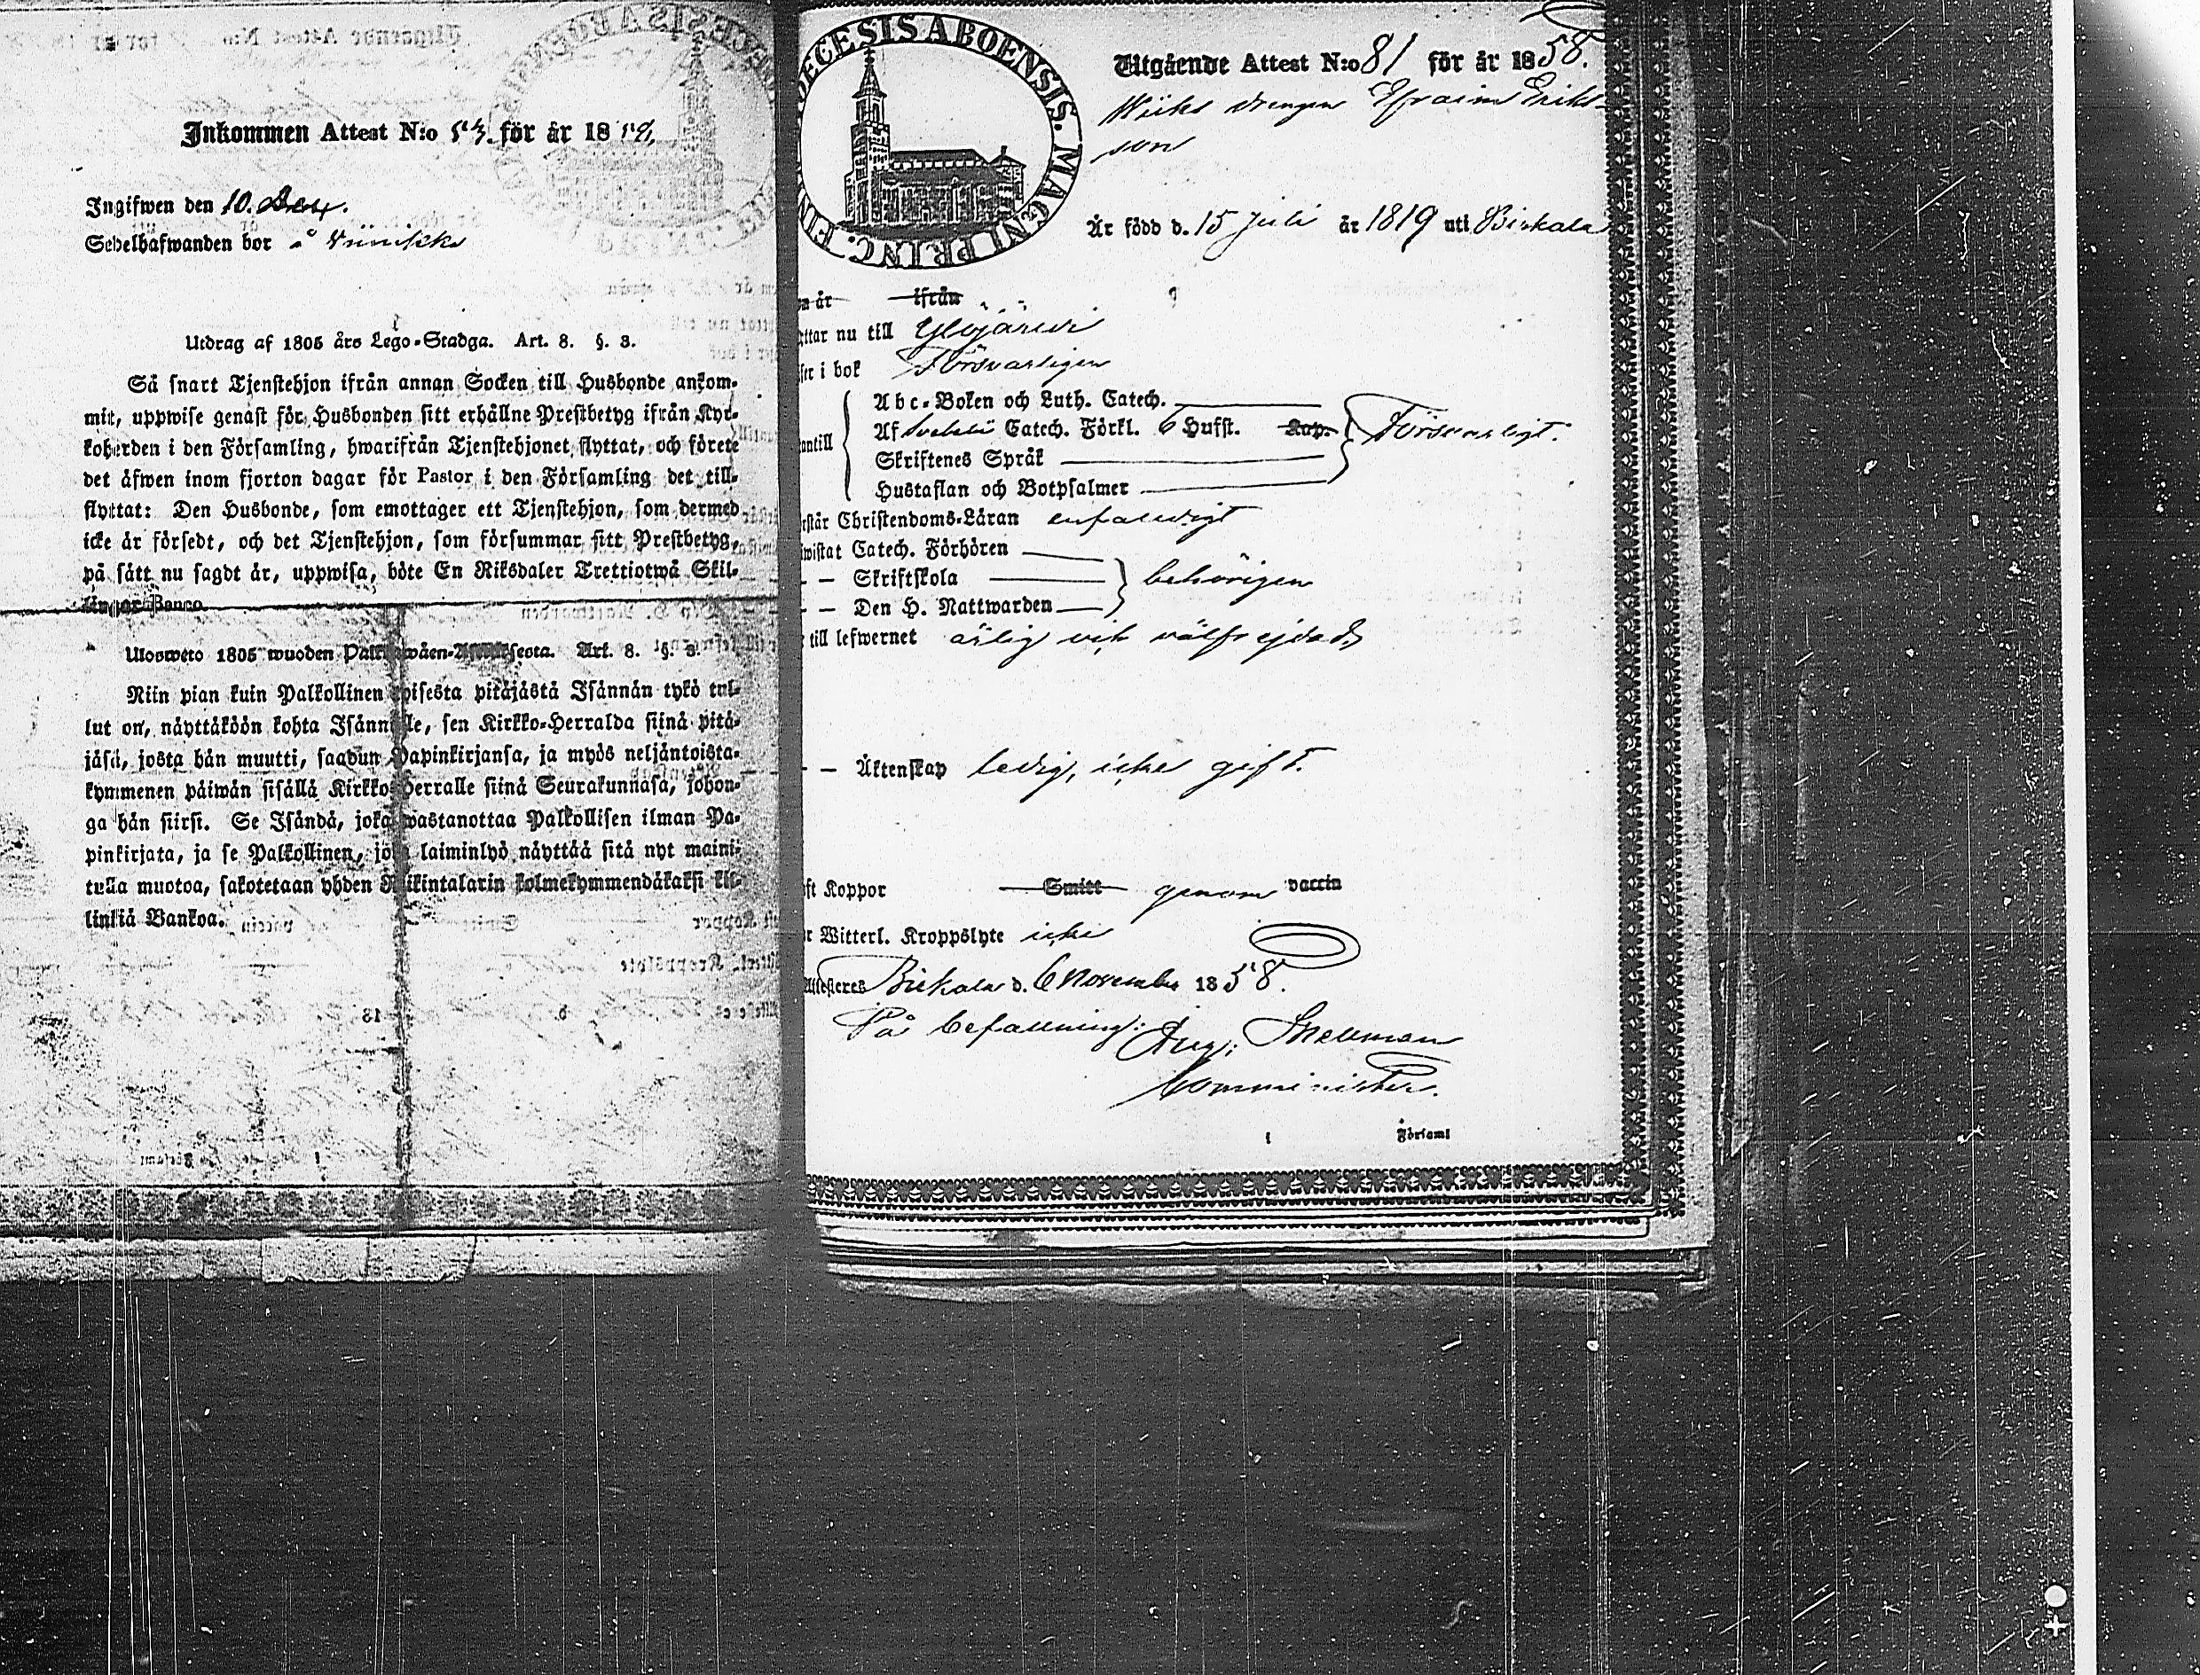 Inkommen Attest N:o 53. för år 18
Ingifwen den 10.
Sedelhafwanden bor å
Utdrag af 1805 års Lego-Stadga. Art. 8. §. 3.
Så snart Tjenstehjon ifrån annan Socken till Husbonde ankom-
mit, uppwise genast för Husbonden sitt erhållne Prestbetyg ifrån Kyr-
koherden i den Församling, hwarifrån Tjenstehjonet flyttat, och förete
det äfwen inom fjorton dagar för Pastor i den Församling det till-
flyttat: Den Husbonde, som emottager ett Tjenstehjon, som dermed
icke är försedt, och det Tjenstehjon, som försummar sitt Prestbetyg,
på sätt nu sagdt är, uppwisa, böte En Riksdaler Trettiotwå Skil-
lingar Banco.
Ulosweto 1805 wuoden Art. 8. §. 3.
Niin pian kuin Palkollinen toisesta pitäjästä Isännän tykö tul-
lut on, näyttäköön kohta Isännälle, sen Kirkko-Herralda siinä pitä-
jäsä, josta hän muutti, saadun Papinkirjansa, ja myös neljäntoista-
kymmenen päiwän sisällä Kirkko-Herralle siinä Seurakunnasa, johon-
ga hän siirsi. Se Isändä, joka wastanottaa Palkollisen ilman Pa-
pinkirjata, ja se Palkollinen, joka laiminlyö näyttää sitä nyt maini-
tulla muotoa, sakotetaan yhden Riikintalarin kolmekymmendäkaksi kil-
linkiä Bankoa.
DIOECESIS ABOENSIS. MAGNI PRINC. FIN
Utgående Attest N:o 81 för år 1858.
drengen Efraim Eriks-
son
Är född d. 15 Juli år 1819 uti Birkala
år ifrån
ttar nu till Ylöjärvi
ser i bok Försvarligen
Abc-Boken och Luth. Catech.
Af Svebelii Catech. Förkl. 6 Hufst. Kap. Försvarligt.
antill
Skriftenes Språk
Hustaflan och Botpsalmer
rstår Christendoms-Läran enfaldigt
wistat Catech. Förhören
- - Skriftskola behörigen
- - Den H. Nattwarden
till lefwernet ärlig och välfrejdad,
- - Äktenskap ledig, icke gift.
ft Koppor Smitt genom vaccin
r Witterl. Kroppslyte icke
Attesteres Birkala d. 6 November 1858.
På befallning: Aug: Snellman
Comminister.
i Församl